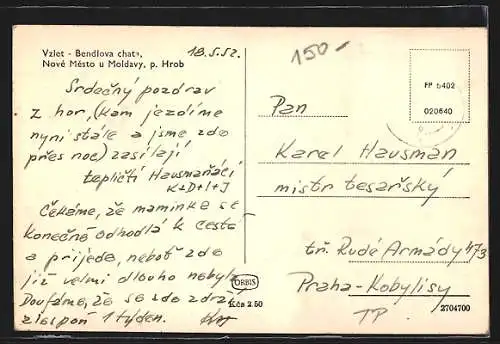 Vzlet - Bendlova chata,
Nové Město u Moldavy, p. Hrob
18.5.52.
150-
FP 5402
020640
Srdečný pozdrav
z hor, (kam jezdíme
nyní stále a jsme zde
přes noc) zasílají
tepličtí Hausmaňáci
K+D+I+J
Čekáme, že maminka se
konečně odhodlá k cestě
a přijede, neboť zde
již velmi dlouho nebyla.
Doufáme, že se zde zdrží
alespoň 1 týden.
Pan
Karel Hausman
mistr tesařský
tř. Rudé Armády 473
Praha-Kobylisy
TP
ORBIS
Kčs 2.50
2704700